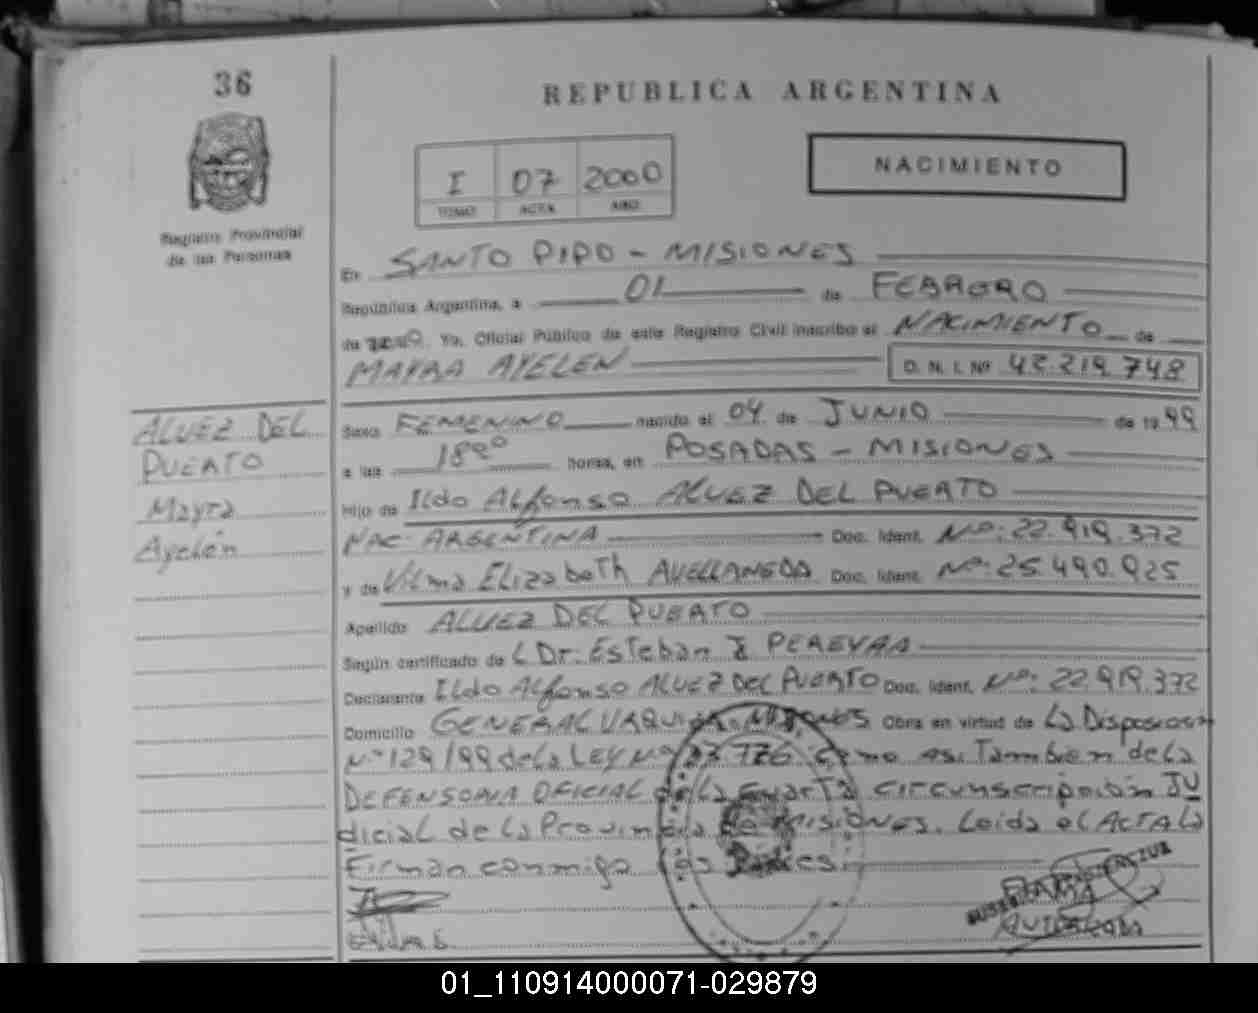 36
REPUBLICA ARGENTINA
I 07 2000
TOMO ACTA AÑO
NACIMIENTO
Registro Provincial
de las Personas
En SANTO PIPO - MISIONES
República Argentina, a 01 de FEBRERO
de Yo, Oficial Público de este Registro Civil inscribo el NACIMIENTO de
MAYRA AYELEN D. N. I. Nº 42.219.748
ALVEZ DEL
PUERTO
Mayra
Ayelén
Sexo FEMENINO nacido el 04 de JUNIO de 1999
a las 18ºº horas, en POSADAS - MISIONES
Hijo de Ildo Alfonso ALVEZ DEL PUERTO
NAC. ARGENTINA Doc. Ident. Nº: 22.919.372
y de Vilma Elizabeth AVELLANEDA Doc. Ident. Nº: 25.490.925
Apellido ALVEZ DEL PUERTO
Según certificado de Dr. Esteban J PEREYRA
Declarante Ildo Alfonso ALVEZ DEL PUERTO Doc. Ident. Nº: 22.919.372
Domicilio GENERAL URQUIZA - MISIONES Obra en virtud de La Disposición
Nº 129/99 de la LEY Nº como asi Tambien de la
DEFENSORIA OFICIAL de la Cuarta circunscripción JU
dicial de la Provincia de MISIONES. Leida el ACTA La
Firman conmigo las Partes.
01_110914000071-029879